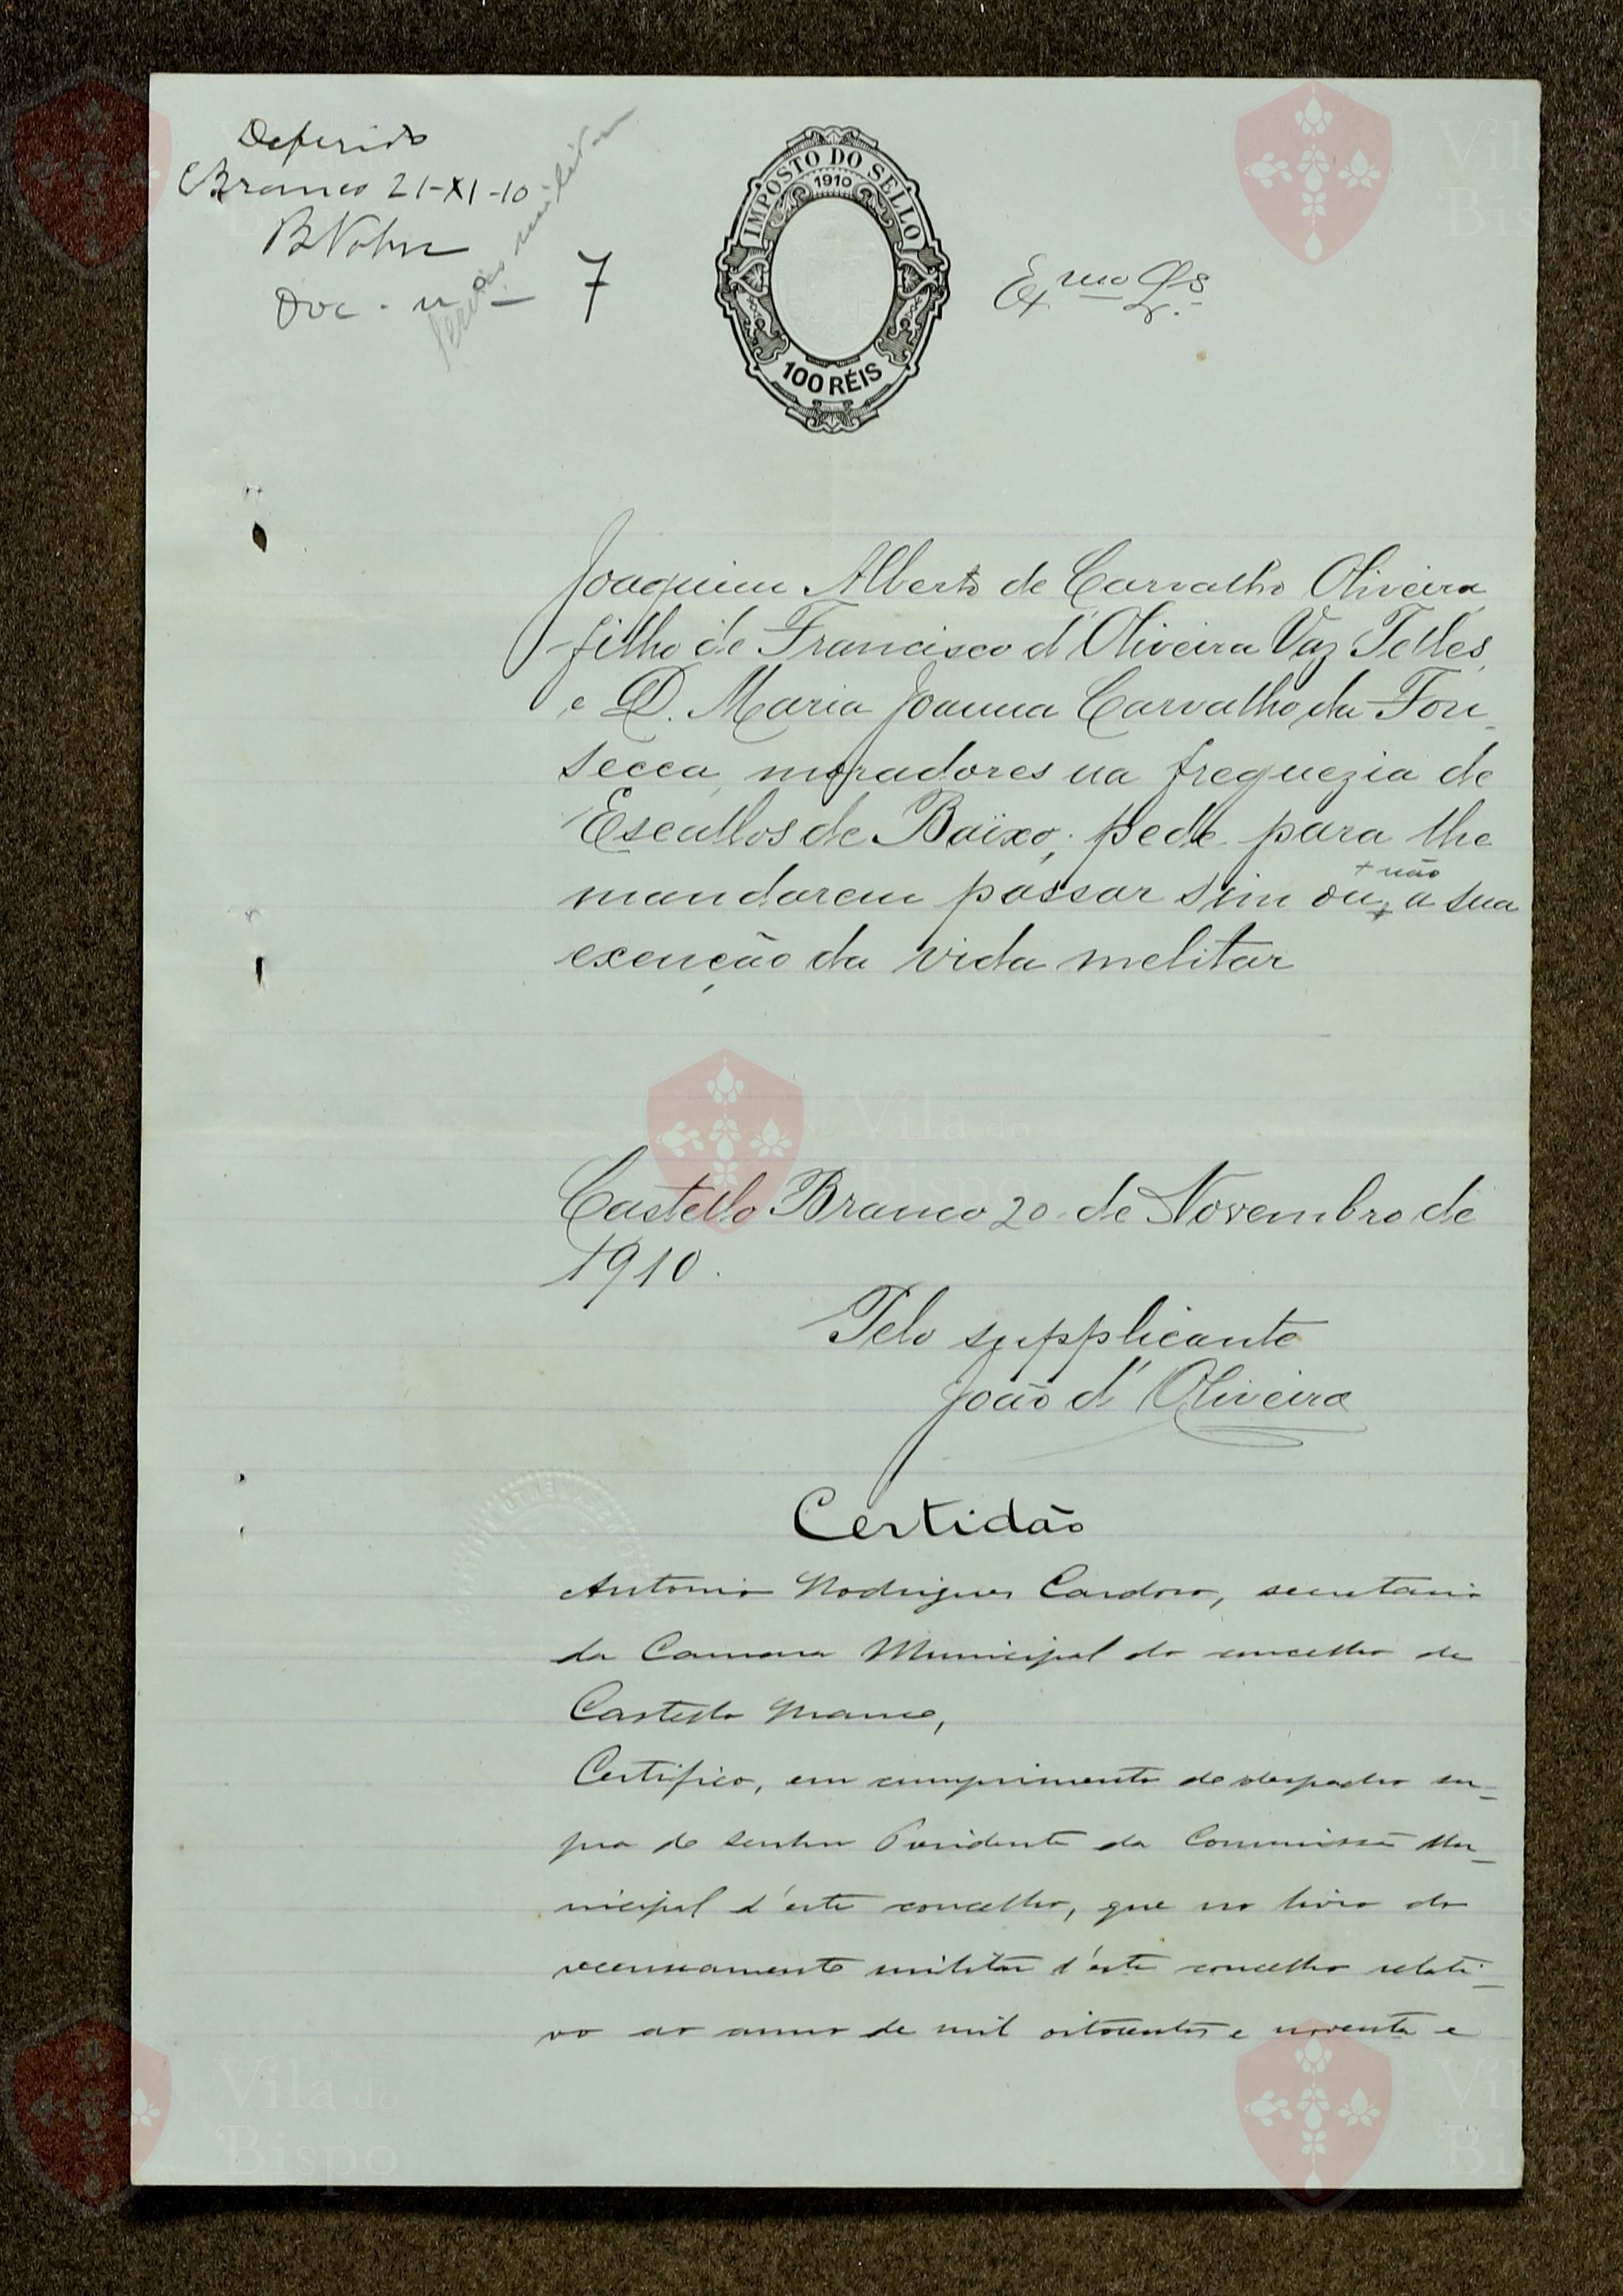 Deferido
C Branco 21-XI-10
Doc. nº 7
Serviço militar
IMPOSTO DO SELLO
1910
100 RÉIS
Exmo Sr.
Joaquim Alberto de Carvalho Oliveira
filho de Francisco d'Oliveira Vaz Telles,
e D. Maria Joanna Carvalho da Fon-
secca, moradores na freguezia de
Escallos de Baixo; pede para lhe
mandarem passar sim ou + a sua
+ não
exenção da vida melitar
Castello Branco 20 de Novembro de
1910.
Pelo supplicante
João d'Oliveira
Certidão
Antonio Rodrigues Cardoso, secretario
da Camara Municipal do concelho de
Castello Branco,
Certifico, em cumprimento do despacho su-
pra do senhor Presidente da Commissão Mu-
nicipal d'este concelho, que no livro do
recenseamento militar d'este concelho relati-
vo ao anno de mil oitocentos e noventa e
Vila do
Bispo
Vila do
Bispo